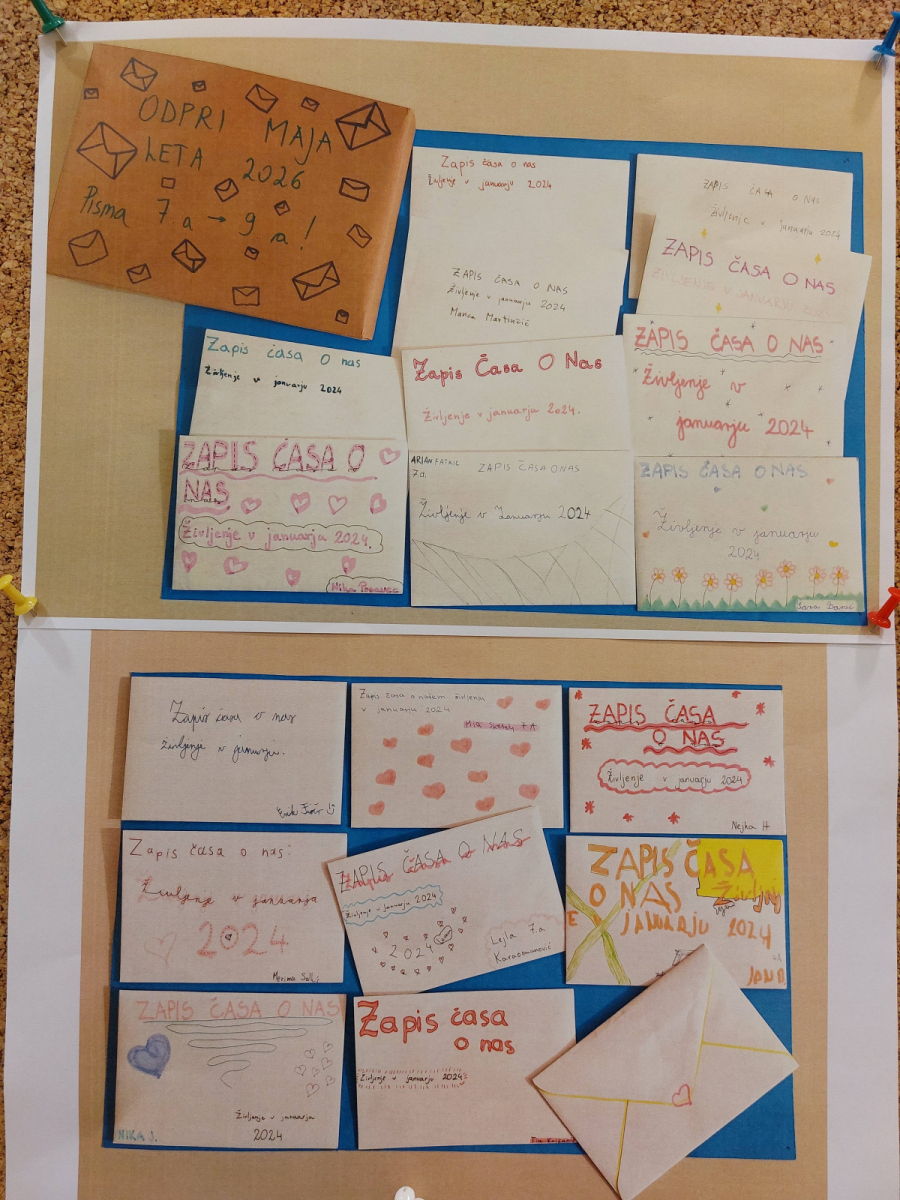 ODPRI MAJA
LETA 2026
Pisma 7a → 9a!
Zapis časa o nas
Življenje v januarju 2024
ZAPIS ČASA O NAS
Življenje v januarju 2024
Manca
ZAPIS ČASA O NAS
Življenje v januarju 2024
ZAPIS ČASA O NAS
ŽIVLJENJE V JANUARJU
Zapis časa o nas
Življenje v januarju 2024
Zapis Časa O Nas
Življenje v januarju 2024.
ZAPIS ČASA O NAS
Življenje v
januarju 2024
ZAPIS ČASA O
NAS
Življenje v januarju 2024.
Nika
7a.
ZAPIS ČASA O NAS
Življenje v Januarju 2024
ZAPIS ČASA O NAS
Življenje v januarju
2024
Zapis časa v nas
življenje v januarju.
Zapis časa o našem življenju
v januarju 2024
Mia 7.A
ZAPIS ČASA
O NAS
Življenje v januarju 2024
Nejka H
Zapis časa o nas:
Življenje v januarju
2024
Merima
ZAPIS ČASA O NAS
Življenje v januarju 2024
2024
Lejla 7.a
Karaosmanović
ZAPIS ČASA
O NAS
JANUARJU 2024
ZAPIS ČASA O NAS
Življenje v januarju
2024
NIKA J.
Zapis časa
o nas
Življenje v januarju 2024